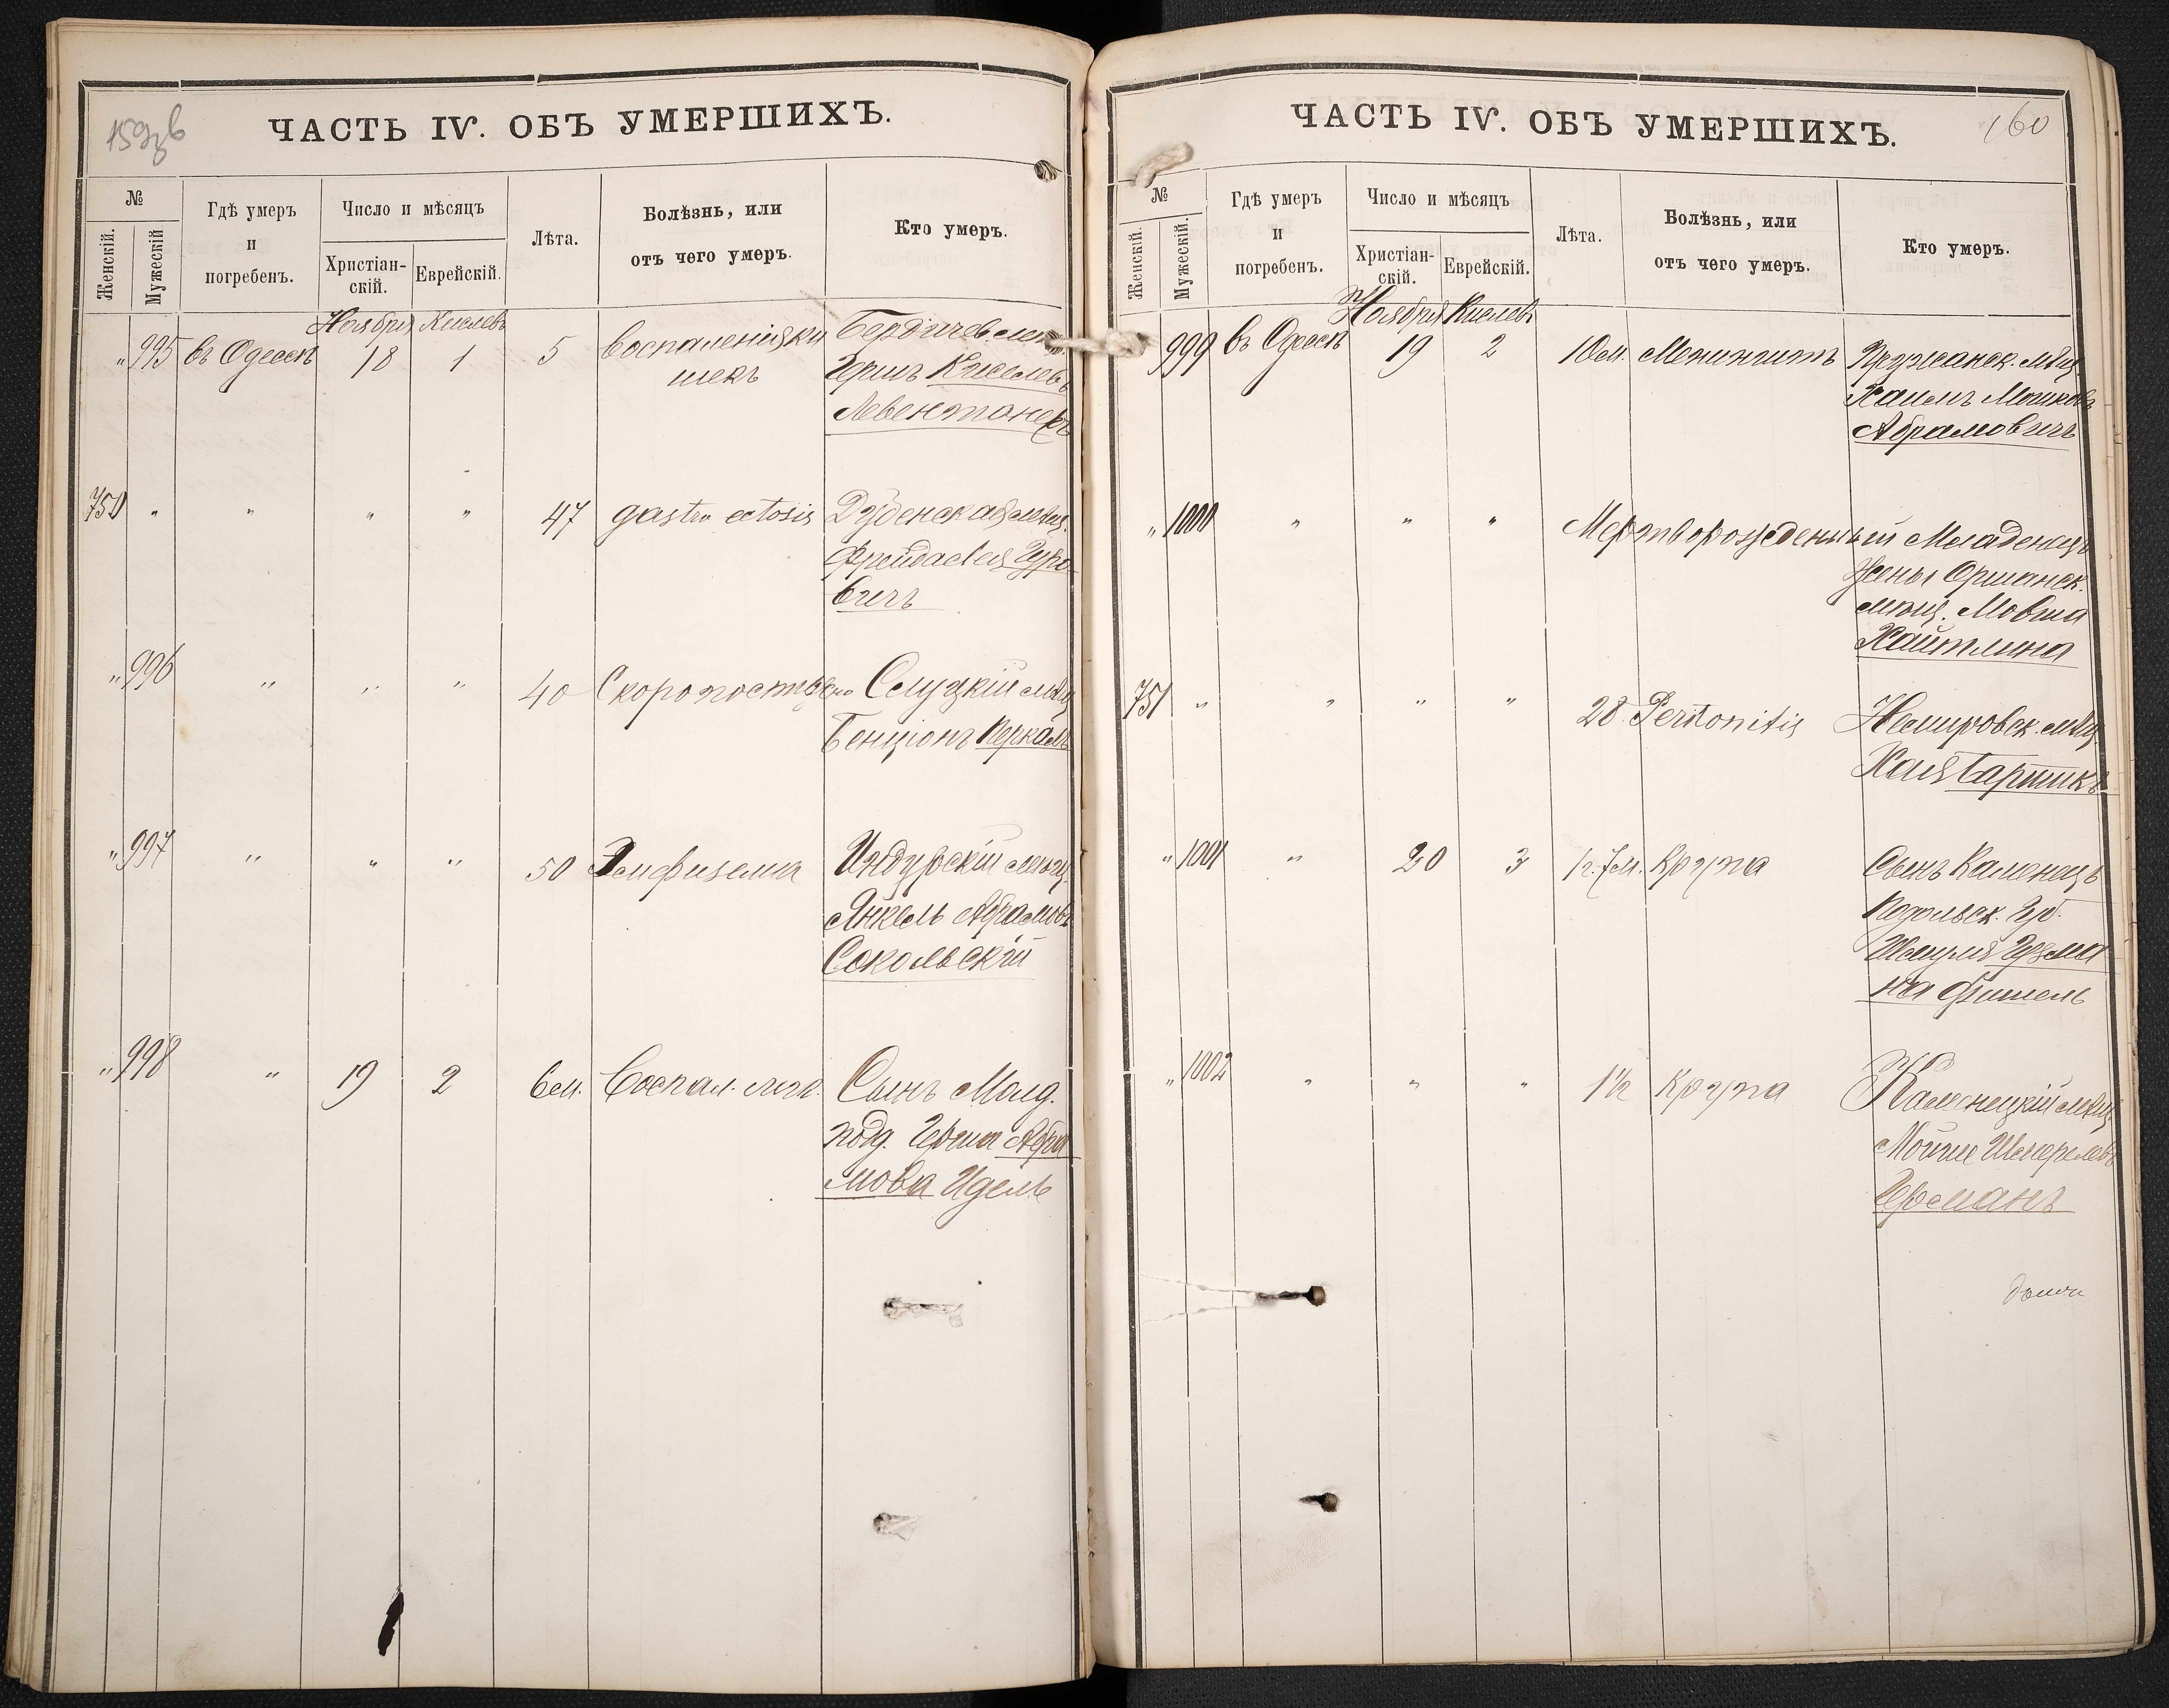 159об
ЧАСТЬ IV. ОБЪ УМЕРШИХЪ.
№
Женскій.
Мужескій
Гдѣ умеръ
и
погребенъ.
Число и мѣсяцъ
Христіан-
скій.
Еврейскій.
Лѣта.
Болѣзнь, или
отъ чего умеръ.
Кто умеръ.
Ноября Кислевъ
" 995 въ Одессѣ 18 1 5 воспаленія ки Бердичев. мѣщ.
шекъ Гершъ Киселевъ
Левентонъ
750 " " " " 47 gastro ectosis Дубенская мѣщ.
Фрейда Гуро-
вичъ
" 996 " " " 40 Скоропостижно Слуцкій мѣщ
Бенціонъ Перкаль
" 997 " " " 50 Эмфизема Индурскій мѣщ.
Янкель Абрамовъ
Сокольскій
" 998 " 19 2 6 м. Воспал. легк. Сынъ Молд.
подд. Герша Абра
мова Идель
160
ЧАСТЬ IV. ОБЪ УМЕРШИХЪ.
№
Женскій.
Мужескій.
Гдѣ умеръ
и
погребенъ.
Число и мѣсяцъ
Христіан-
скій.
Еврейскій.
Лѣта.
Болѣзнь, или
отъ чего умеръ.
Кто умеръ.
Ноября Кислевъ
999 въ Одессѣ 19 2 10 м. Менингитъ Пружанск. мѣщ.
Хаимъ Мошковъ
Абрамовичъ
" 1000 " " " Мертворожденный Младенецъ
Жены Оршанск.
мѣщ. Мовша
Хайтлина
751 " " " " 28 Peritonitis Немировск. мѣщ.
Хая
" 1001 " 20 3 1 г. 7 м. Крупа Сынъ Каменецъ
Подольск. Губ.
Шмуля Гузма
на Фишель
" 1002 " " " 1½ Крупа Каменецкій мѣщ
Мойше Шмерлевъ
Гросманъ